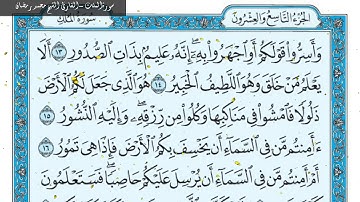 سورة الملك - القارئ الشيخ محمد رمضان
الجزء التاسع والعشرون
سورة الملك
وَأَسِرُّوا۟ قَوْلَكُمْ أَوِ ٱجْهَرُوا۟ بِهِۦٓ إِنَّهُۥ عَلِيمٌۢ بِذَاتِ ٱلصُّدُورِ ١٣ أَلَا
يَعْلَمُ مَنْ خَلَقَ وَهُوَ ٱللَّطِيفُ ٱلْخَبِيرُ ١٤ هُوَ ٱلَّذِى جَعَلَ لَكُمُ ٱلْأَرْضَ
ذَلُولًا فَٱمْشُوا۟ فِى مَنَاكِبِهَا وَكُلُوا۟ مِن رِّزْقِهِۦ وَإِلَيْهِ ٱلنُّشُورُ ١٥
ءَأَمِنتُم مَّن فِى ٱلسَّمَآءِ أَن يَخْسِفَ بِكُمُ ٱلْأَرْضَ فَإِذَا هِىَ تَمُورُ ١٦
أَمْ أَمِنتُم مَّن فِى ٱلسَّمَآءِ أَن يُرْسِلَ عَلَيْكُمْ حَاصِبًا فَسَتَعْلَمُونَ